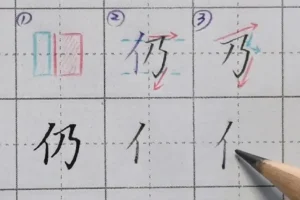 ① ② 仍 ③ 乃
仍 亻 亻